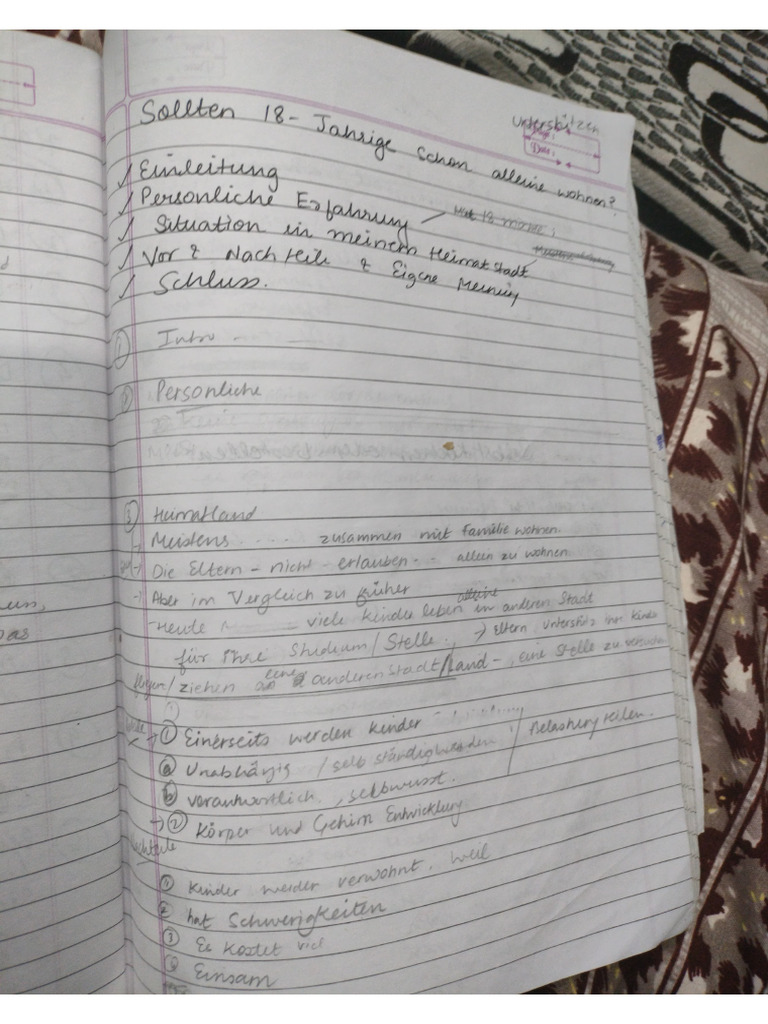 Unterstützen
Date:
Sollten 18 - Jahrige schon alleine wohnen?
Einleitung
Personliche Erfahrung
Situation in meinem Heimatstadt
Vor & Nachteile & Eigene Meinung
Schluss.
① Intro
② Personliche
③ Heimatland
Meistens .... zusammen mit Familie wohnen.
Die Eltern - nicht - erlauben -- allein zu wohnen
Aber im Vergleich zu früher
Heute viele kinder leben alleine in anderen Stadt
für ihre Studium/Stelle. → Eltern unterstüts ihr kinder
/ziehen eine anderen Stadt/Land -, eine Stelle zu versuchen
① Einerseits werden kinder
ⓐ Unabhängig /selbständig werden /
ⓑ verantwortlich, selbwusst.
→ ② Körper und Gehirn Entwicklung
Nachteile
① kinder werder verwohnt. weil
2 hat Schwerigkeiten
③ Es kostet viel
④ Einsam